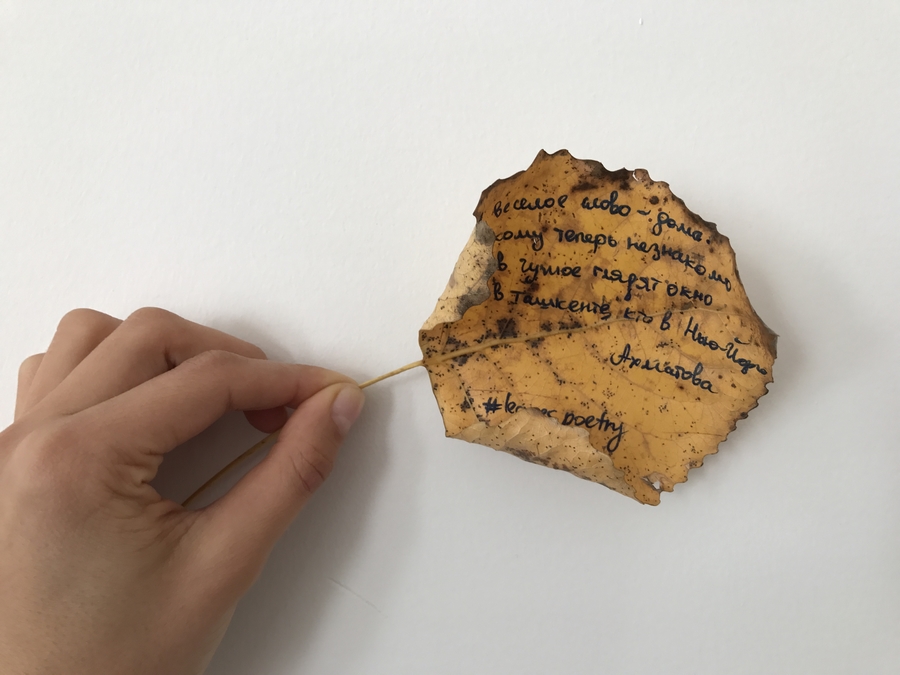 весёлое слово – дома.
кому теперь незнакомо
в чужое глядят окно
в Ташкенте, кто в Нью-Йорк
Ахматова
poetry